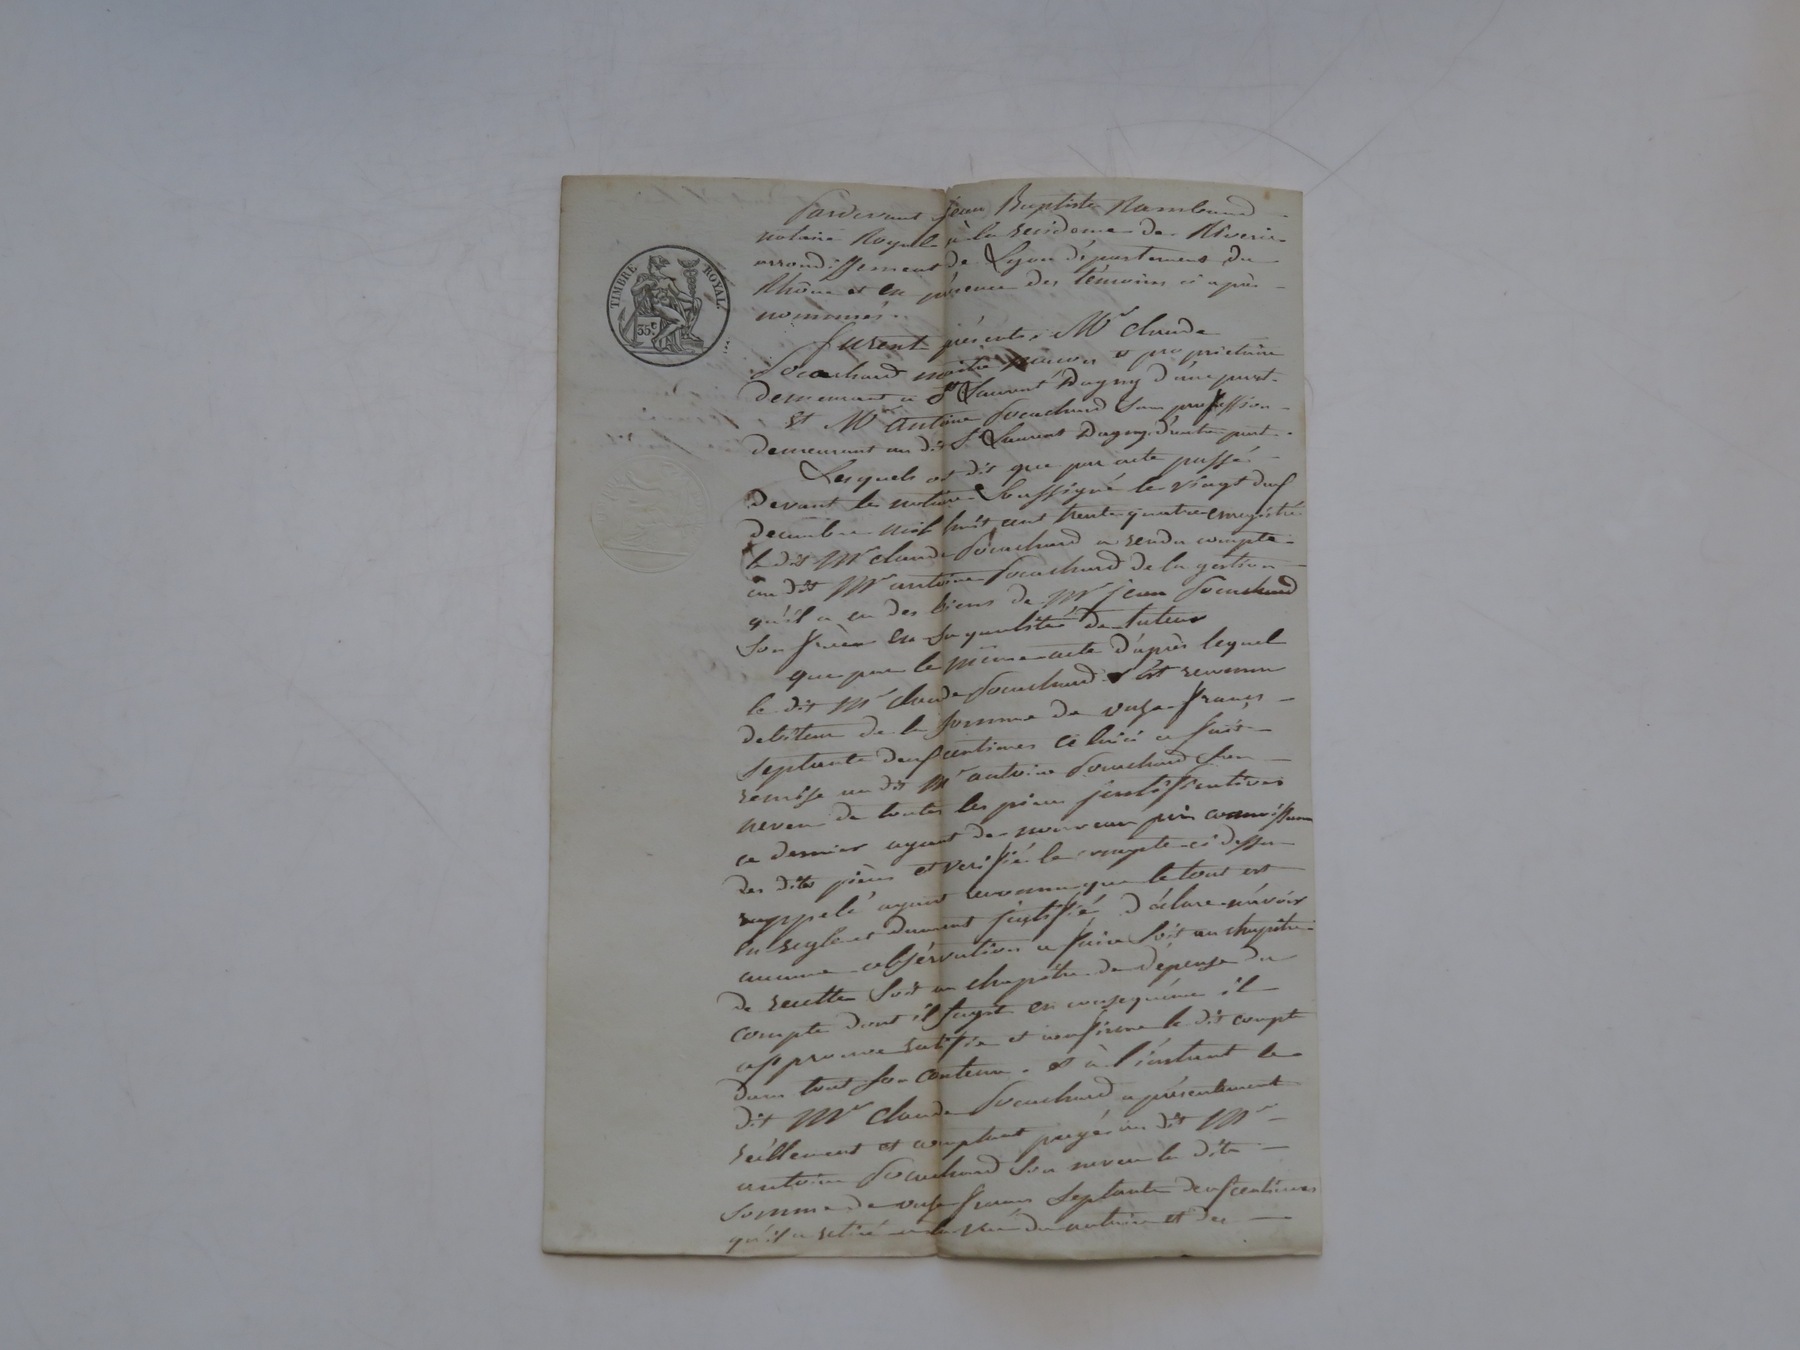 TIMBRE ROYAL
35c
Pardevant Jean Baptiste Rambaud
notaire Royal à la residence de Riverie
arrondissement de Lyon département du
Rhône et en présence des témoins ci après
nommés.
furent présents Mr claude
Souchard maître maçon & propriétaire
demeurant a St Laurent Dagny d'une part.
Et Mr antoine Souchard Sans profession
demeurant au dit St Laurent Dagny, d'autre part.
Lesquels ont dit que par acte passé
devant le notaire Soussigné le vingt deux
decembre mil huit cent trente quatre enregistré
le dit Mr claude Souchard a rendu compte
au dit Mr antoine Souchard de la gestion
qu'il a eu des biens de Mr jean Souchard
Son frère en Sa qualité de tuteur
que par le même acte d'après lequel
le dit Mr claude Souchard S'est reconnu
debiteur de la Somme de onze francs
Septante deux centimes Celui ci a fait
remise au dit Mr antoine Souchard Son
neveu de toutes les pièces justificatives
ce dernier ayant de nouveau pris connoissance
des dites pièces et verifié le compte ci dessus
rappelé ayant reconnu que le tout est
en regle et dument justifié, déclare n'avoir
aucune observation a faire Soit au chapitre
de recette Soit au chapitre de dépense du
compte dont il Sagit en conséquence il
approuve ratifie et confirme le dit compte
dans tout Son contenu. et à l'instant le
dit Mr Claude Souchard a présentement
réellement et comptant payé au dit Mr
antoine Souchard Son neveu la dite
Somme de onze francs Septante deux centimes
qu'il a retiré a la vue du notaire et des